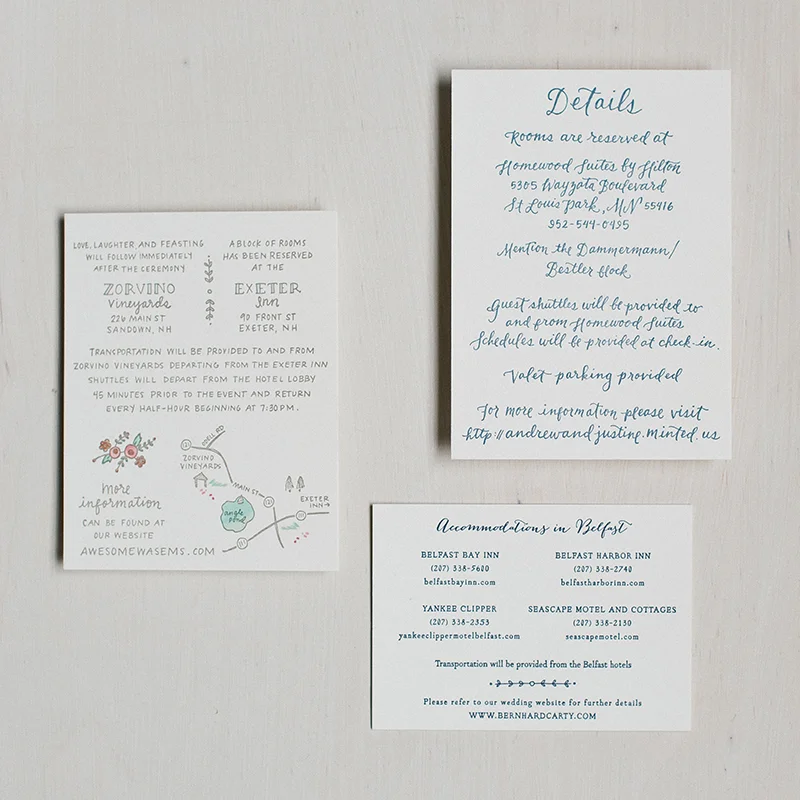 LOVE, LAUGHTER, AND FEASTING
WILL FOLLOW IMMEDIATELY
AFTER THE CEREMONY
ZORVINO
Vineyards
226 MAIN ST
SANDOWN, NH
A BLOCK OF ROOMS
HAS BEEN RESERVED
AT THE
EXETER
Inn
90 FRONT ST
EXETER, NH
TRANSPORTATION WILL BE PROVIDED TO AND FROM
ZORVINO VINEYARDS DEPARTING FROM THE EXETER INN
SHUTTLES WILL DEPART FROM THE HOTEL LOBBY
45 MINUTES PRIOR TO THE EVENT AND RETURN
EVERY HALF-HOUR BEGINNING AT 7:30PM.
more
information
CAN BE FOUND AT
OUR WEBSITE
AWESOMEWASEMS.COM
121
ODELL RD
ZORVINO
VINEYARDS
MAIN ST
121
angle
pond
EXETER
INN
111
Details
Rooms are reserved at
Homewood Suites by Hilton
5305 Wayzata Boulevard
St Louis Park, MN 55416
952-544-0495
Mention the Dammermann/
Bestler block
Guest shuttles will be provided to
and from Homewood Suites
Schedules will be provided at check-in.
Valet parking provided
For more information please visit
http://andrewandjustine.minted.us
Accommodations in Belfast
BELFAST BAY INN
(207) 338-5600
belfastbayinn.com
BELFAST HARBOR INN
(207) 338-2740
belfastharborinn.com
YANKEE CLIPPER
(207) 338-2353
yankeeclippermotelbelfast.com
SEASCAPE MOTEL AND COTTAGES
(207) 338-2130
seascapemotel.com
Transportation will be provided from the Belfast hotels
Please refer to our wedding website for further details
WWW.BERNHARDCARTY.COM